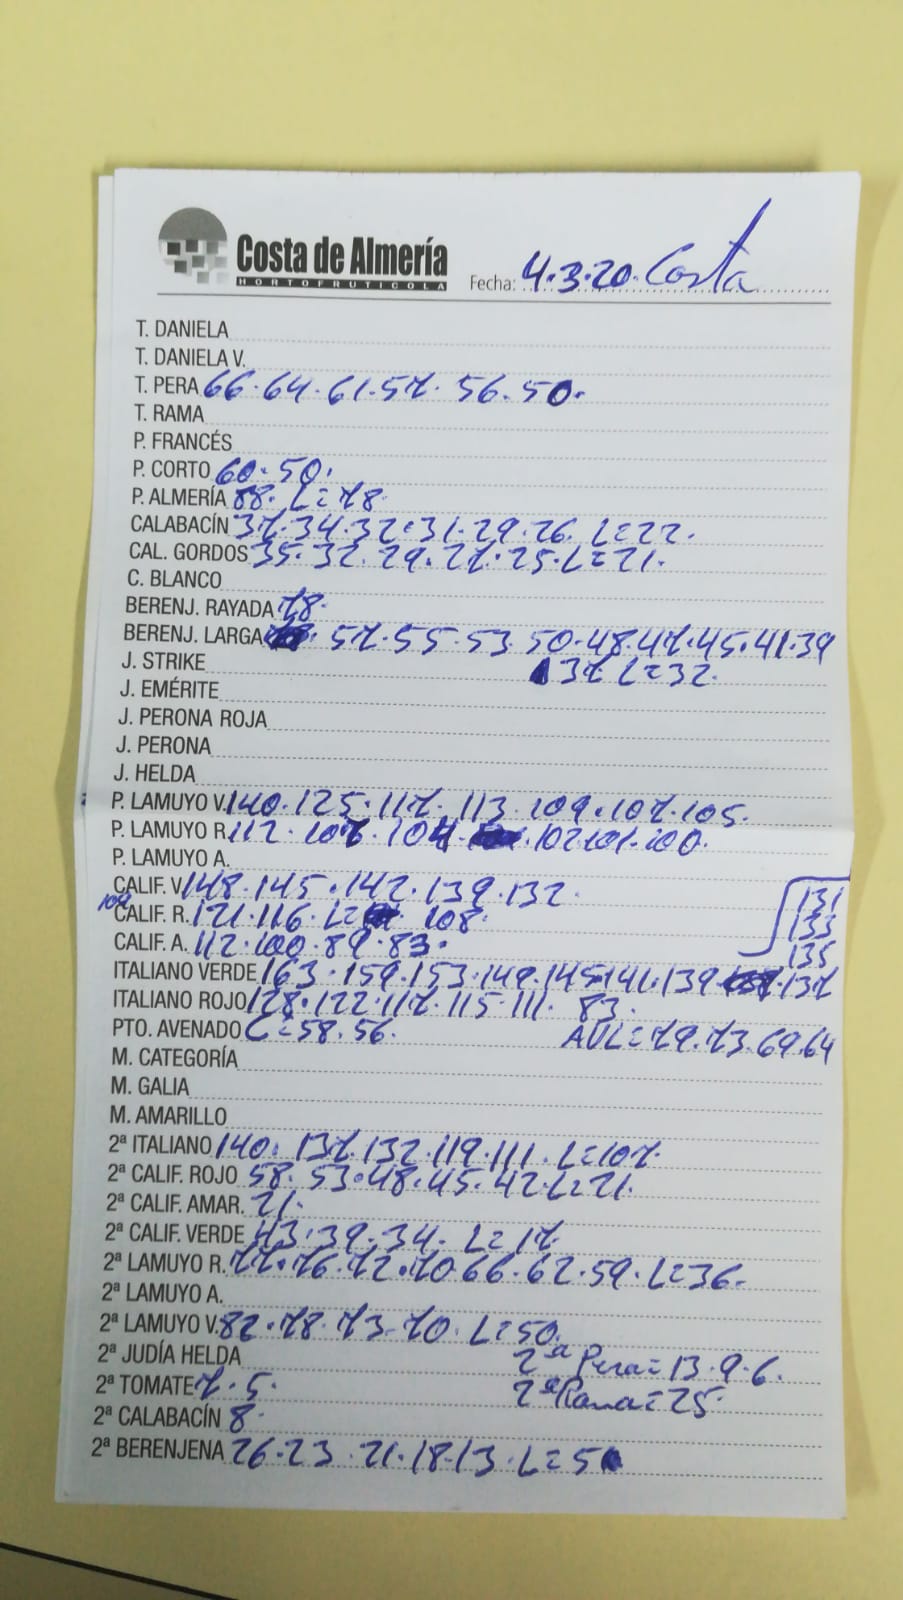 Costa de Almería
HORTOFRUTICOLA
Fecha: 4.3.20. Costa
T. DANIELA
T. DANIELA V.
T. PERA 66.64.61.57.56.50.
T. RAMA
P. FRANCÉS
P. CORTO 60.50.
P. ALMERÍA 88. L=78
CALABACÍN 37.34.32.31.29.26. L=22.
CAL. GORDOS 35.32.29.27.25.L=21.
C. BLANCO
BERENJ. RAYADA 78.
BERENJ. LARGA 57.55.53.50.48.47.45.41.39
J. STRIKE 37 L=32.
J. EMÉRITE
J. PERONA ROJA
J. PERONA
J. HELDA
P. LAMUYO V. 140.125.117.113.109.107.105.
P. LAMUYO R. 112.107.104.102.101.100.
P. LAMUYO A.
CALIF. V. 148.145.142.139.132. 131
109 CALIF. R. 121.116.L= 108. 133
CALIF. A. 112.100.89.83. 135
ITALIANO VERDE 163.159.153.149.145.141.139.137
ITALIANO ROJO 128.122.117.115.111. 83.
PTO. AVENADO C=58.56. AVL=79.73.69.64
M. CATEGORÍA
M. GALIA
M. AMARILLO
2ª ITALIANO 140.137.132.119.111.L=107.
2ª CALIF. ROJO 58.53.48.45.42.L=21.
2ª CALIF. AMAR. 21.
2ª CALIF. VERDE 43.39.34. L=17.
2ª LAMUYO R. 77.76.72.70.66.62.59.L=36.
2ª LAMUYO A.
2ª LAMUYO V. 82.78.73.70. L=50.
2ª JUDÍA HELDA 2ª Pera=13.9.6.
2ª TOMATE 7.5. 2ª Rama=25.
2ª CALABACÍN 8.
2ª BERENJENA 26.23.21.18.13.L=5